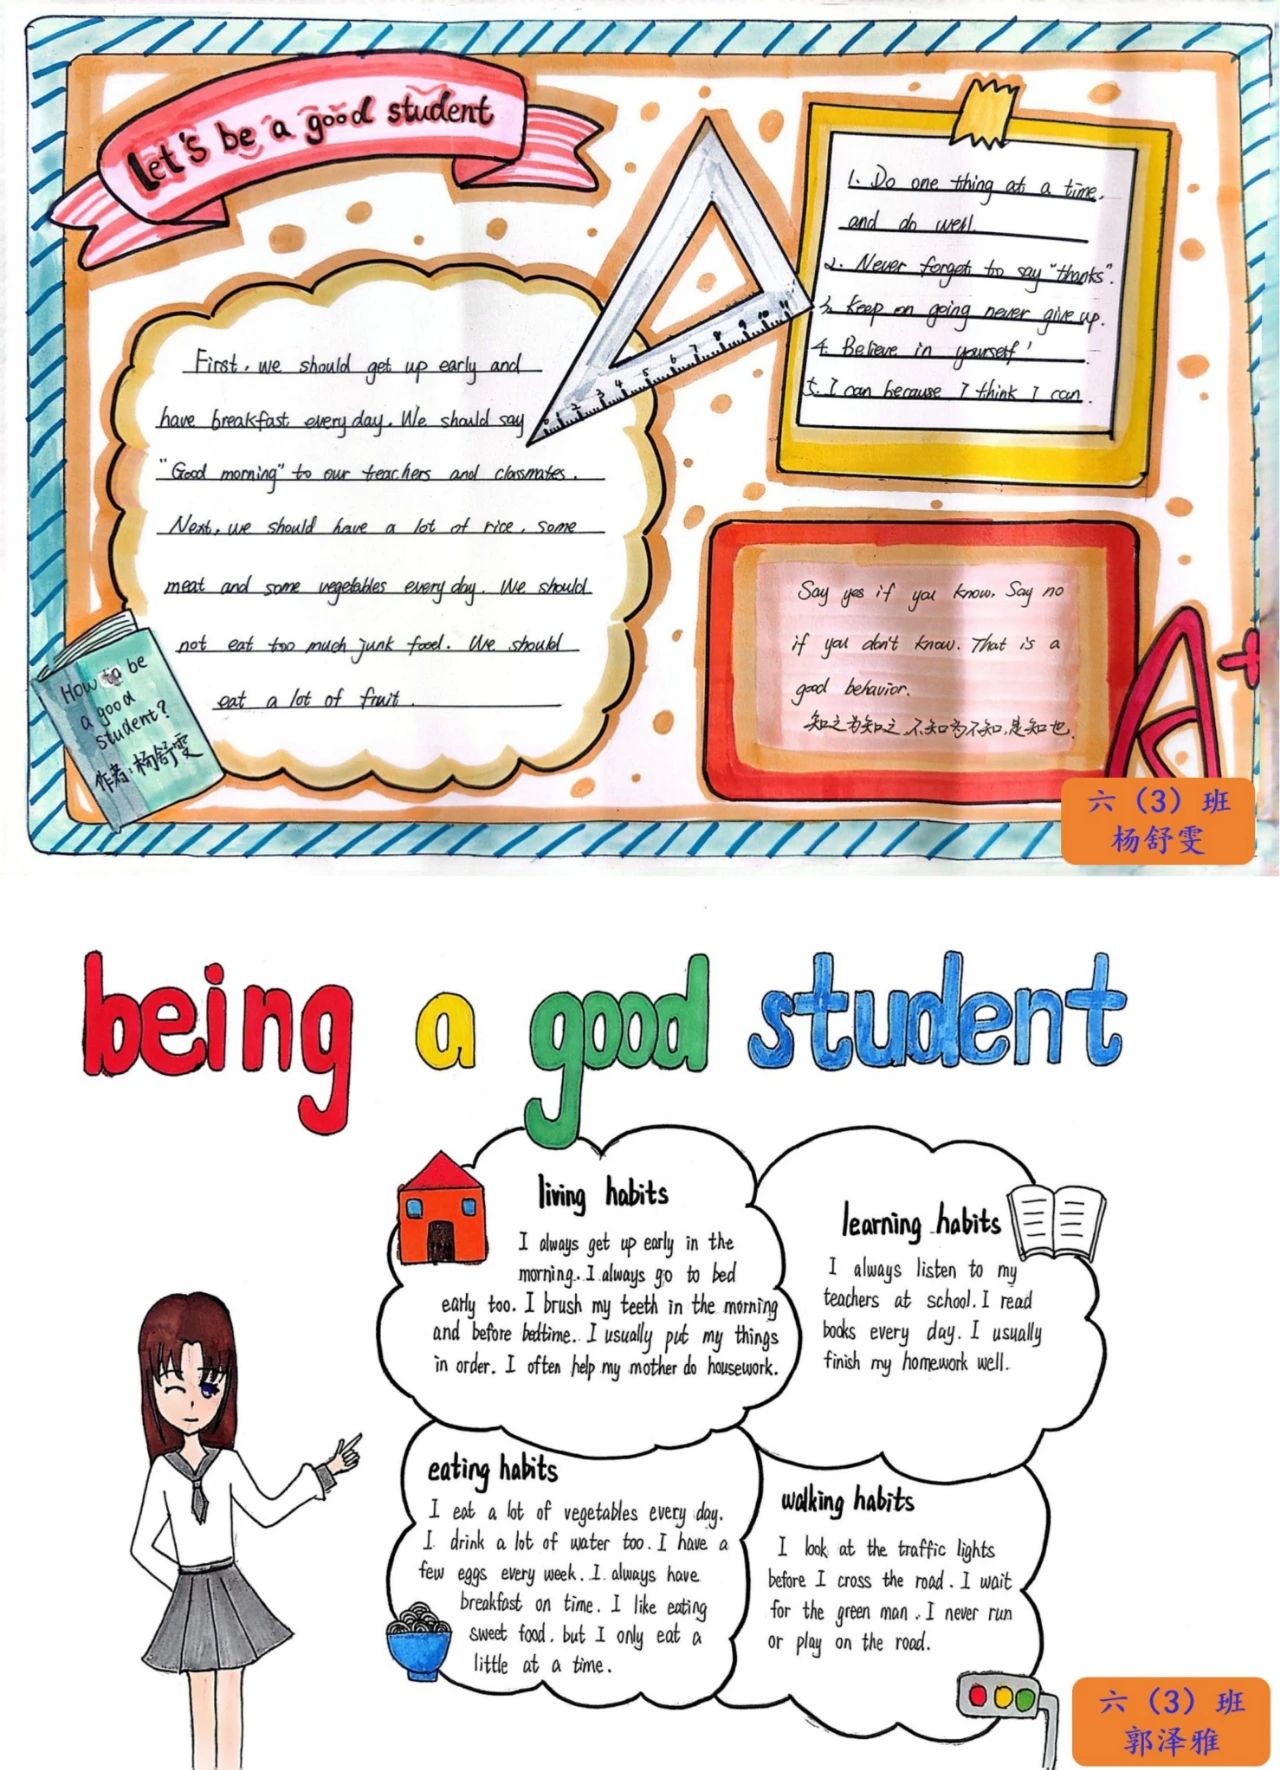 Let's be a good student
First, we should get up early and
have breakfast every day. We should say
"Good morning" to our teachers and classmates.
Next, we should have a lot of rice, some
meat and some vegetables every day. We should
not eat too much junk food. We should
eat a lot of fruit.
How to be
a good
student?
作者:杨舒雯
0 1 2 3 4 5 6 7 8 9 10 11
1. Do one thing at a time,
and do well.
2. Never forget to say "thanks".
3. Keep on going never give up.
4. Believe in yourself!
5. I can because I think I can.
Say yes if you know. Say no
if you don't know. That is a
good behavior.
知之为知之,不知为不知,是知也.
A+
六（3）班
杨舒雯
being a good student
living habits
I always get up early in the
morning. I always go to bed
early too. I brush my teeth in the morning
and before bedtime. I usually put my things
in order. I often help my mother do housework.
learning habits
I always listen to my
teachers at school. I read
books every day. I usually
finish my homework well.
eating habits
I eat a lot of vegetables every day.
I drink a lot of water too. I have a
few eggs every week. I always have
breakfast on time. I like eating
sweet food, but I only eat a
little at a time.
walking habits
I look at the traffic lights
before I cross the road. I wait
for the green man. I never run
or play on the road.
六（3）班
郭泽雅